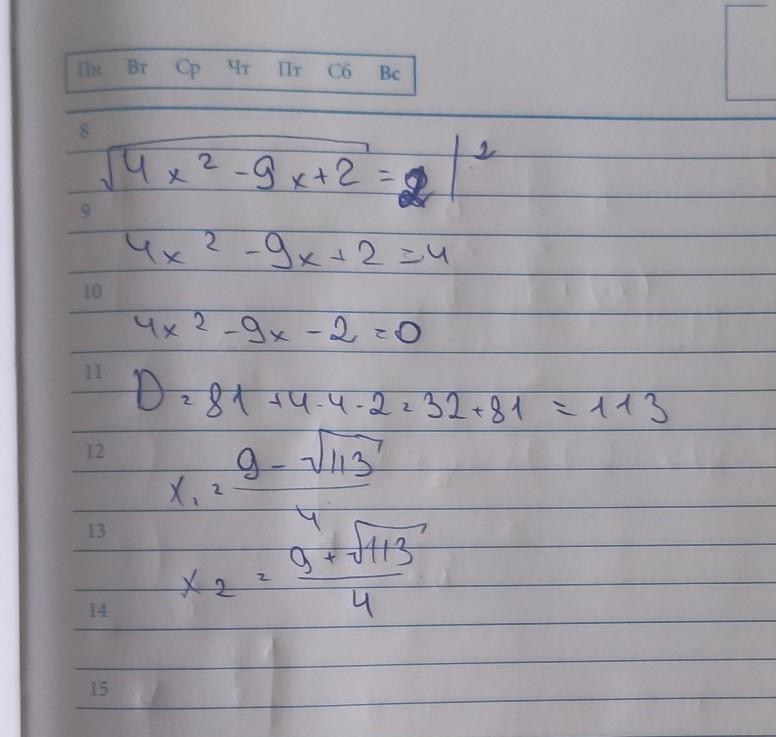 Пн Вт Ср Чт Пт Сб Вс
8
√4x² - 9x + 2 = 2 |²
9
4x² - 9x + 2 = 4
10
4x² - 9x - 2 = 0
11
D = 81 + 4·4·2 = 32 + 81 = 113
12
x₁ = (9 - √113) / 4
13
x₂ = (9 + √113) / 4
14
15